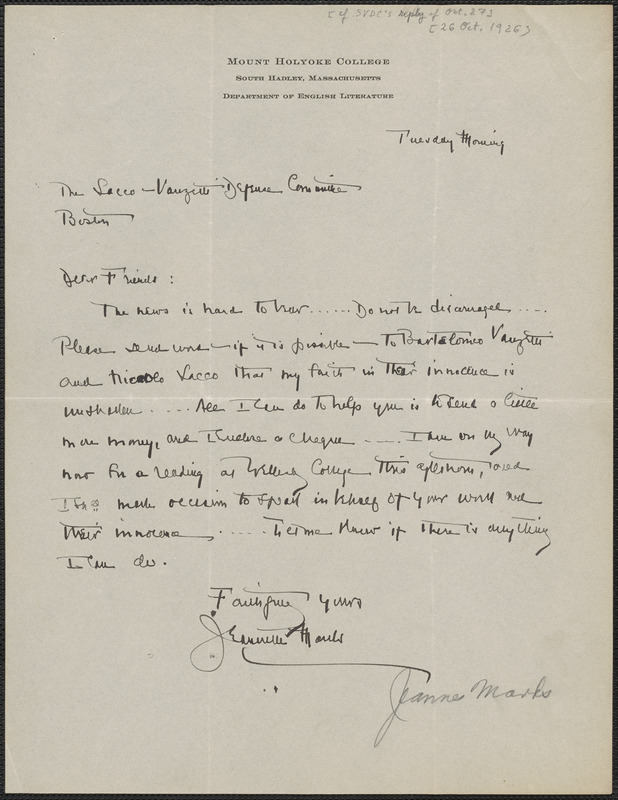 [cf SVDC's reply of Oct. 27]
[26 Oct. 1926]
MOUNT HOLYOKE COLLEGE
SOUTH HADLEY, MASSACHUSETTS
DEPARTMENT OF ENGLISH LITERATURE
Tuesday Morning
The Sacco-Vanzetti Defense Committee
Boston
Dear Friends:
The news is hard to hear...... Do not be discouraged....
Please send word - if it is possible - to Bartolomeo Vanzetti
and Nicolo Sacco that my faith in their innocence is
unshaken.... All I can do to help you is to send a little
more money, and I enclose a cheque.... I am on my way
now for a reading at Wellesley College this afternoon, and
I make occasion to speak in behalf of your work and
their innocence...... Let me know if there is anything
I can do.
Faithfully yours
Jeannette Marks
Jeanne Marks